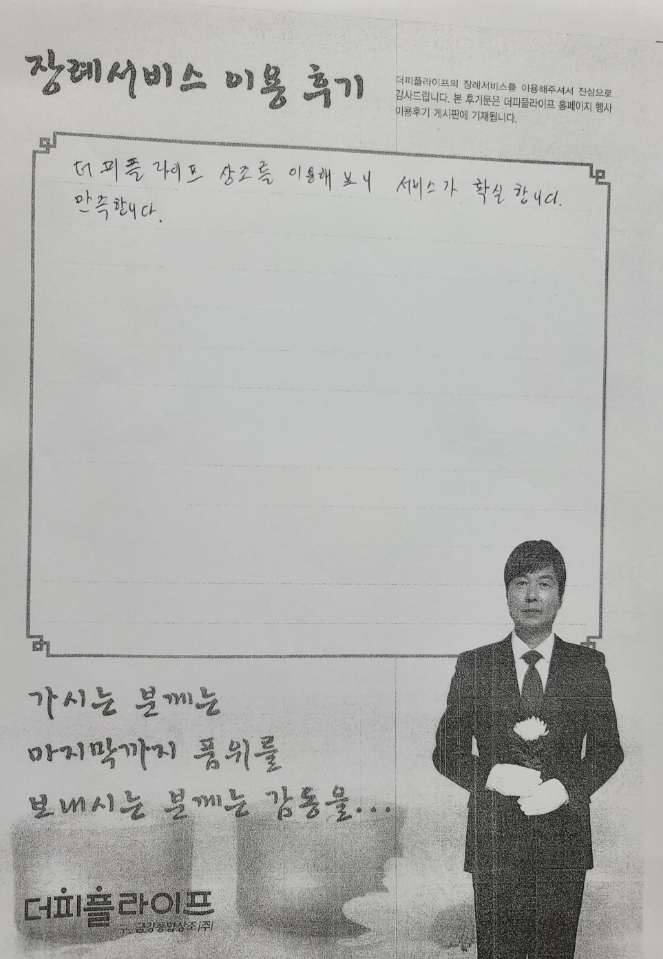 장례서비스 이용 후기
더피플라이프의 장례서비스를 이용해주셔서 진심으로
감사드립니다. 본 후기문은 더피플라이프 홈페이지 행사
이용후기 게시판에 기재됩니다.
더피플라이프 상조를 이용해 보니 서비스가 확실합니다.
만족합니다.
가시는 분께는
마지막까지 품위를
보내시는 분께는 감동을...
더피플라이프
금강종합상조(주)